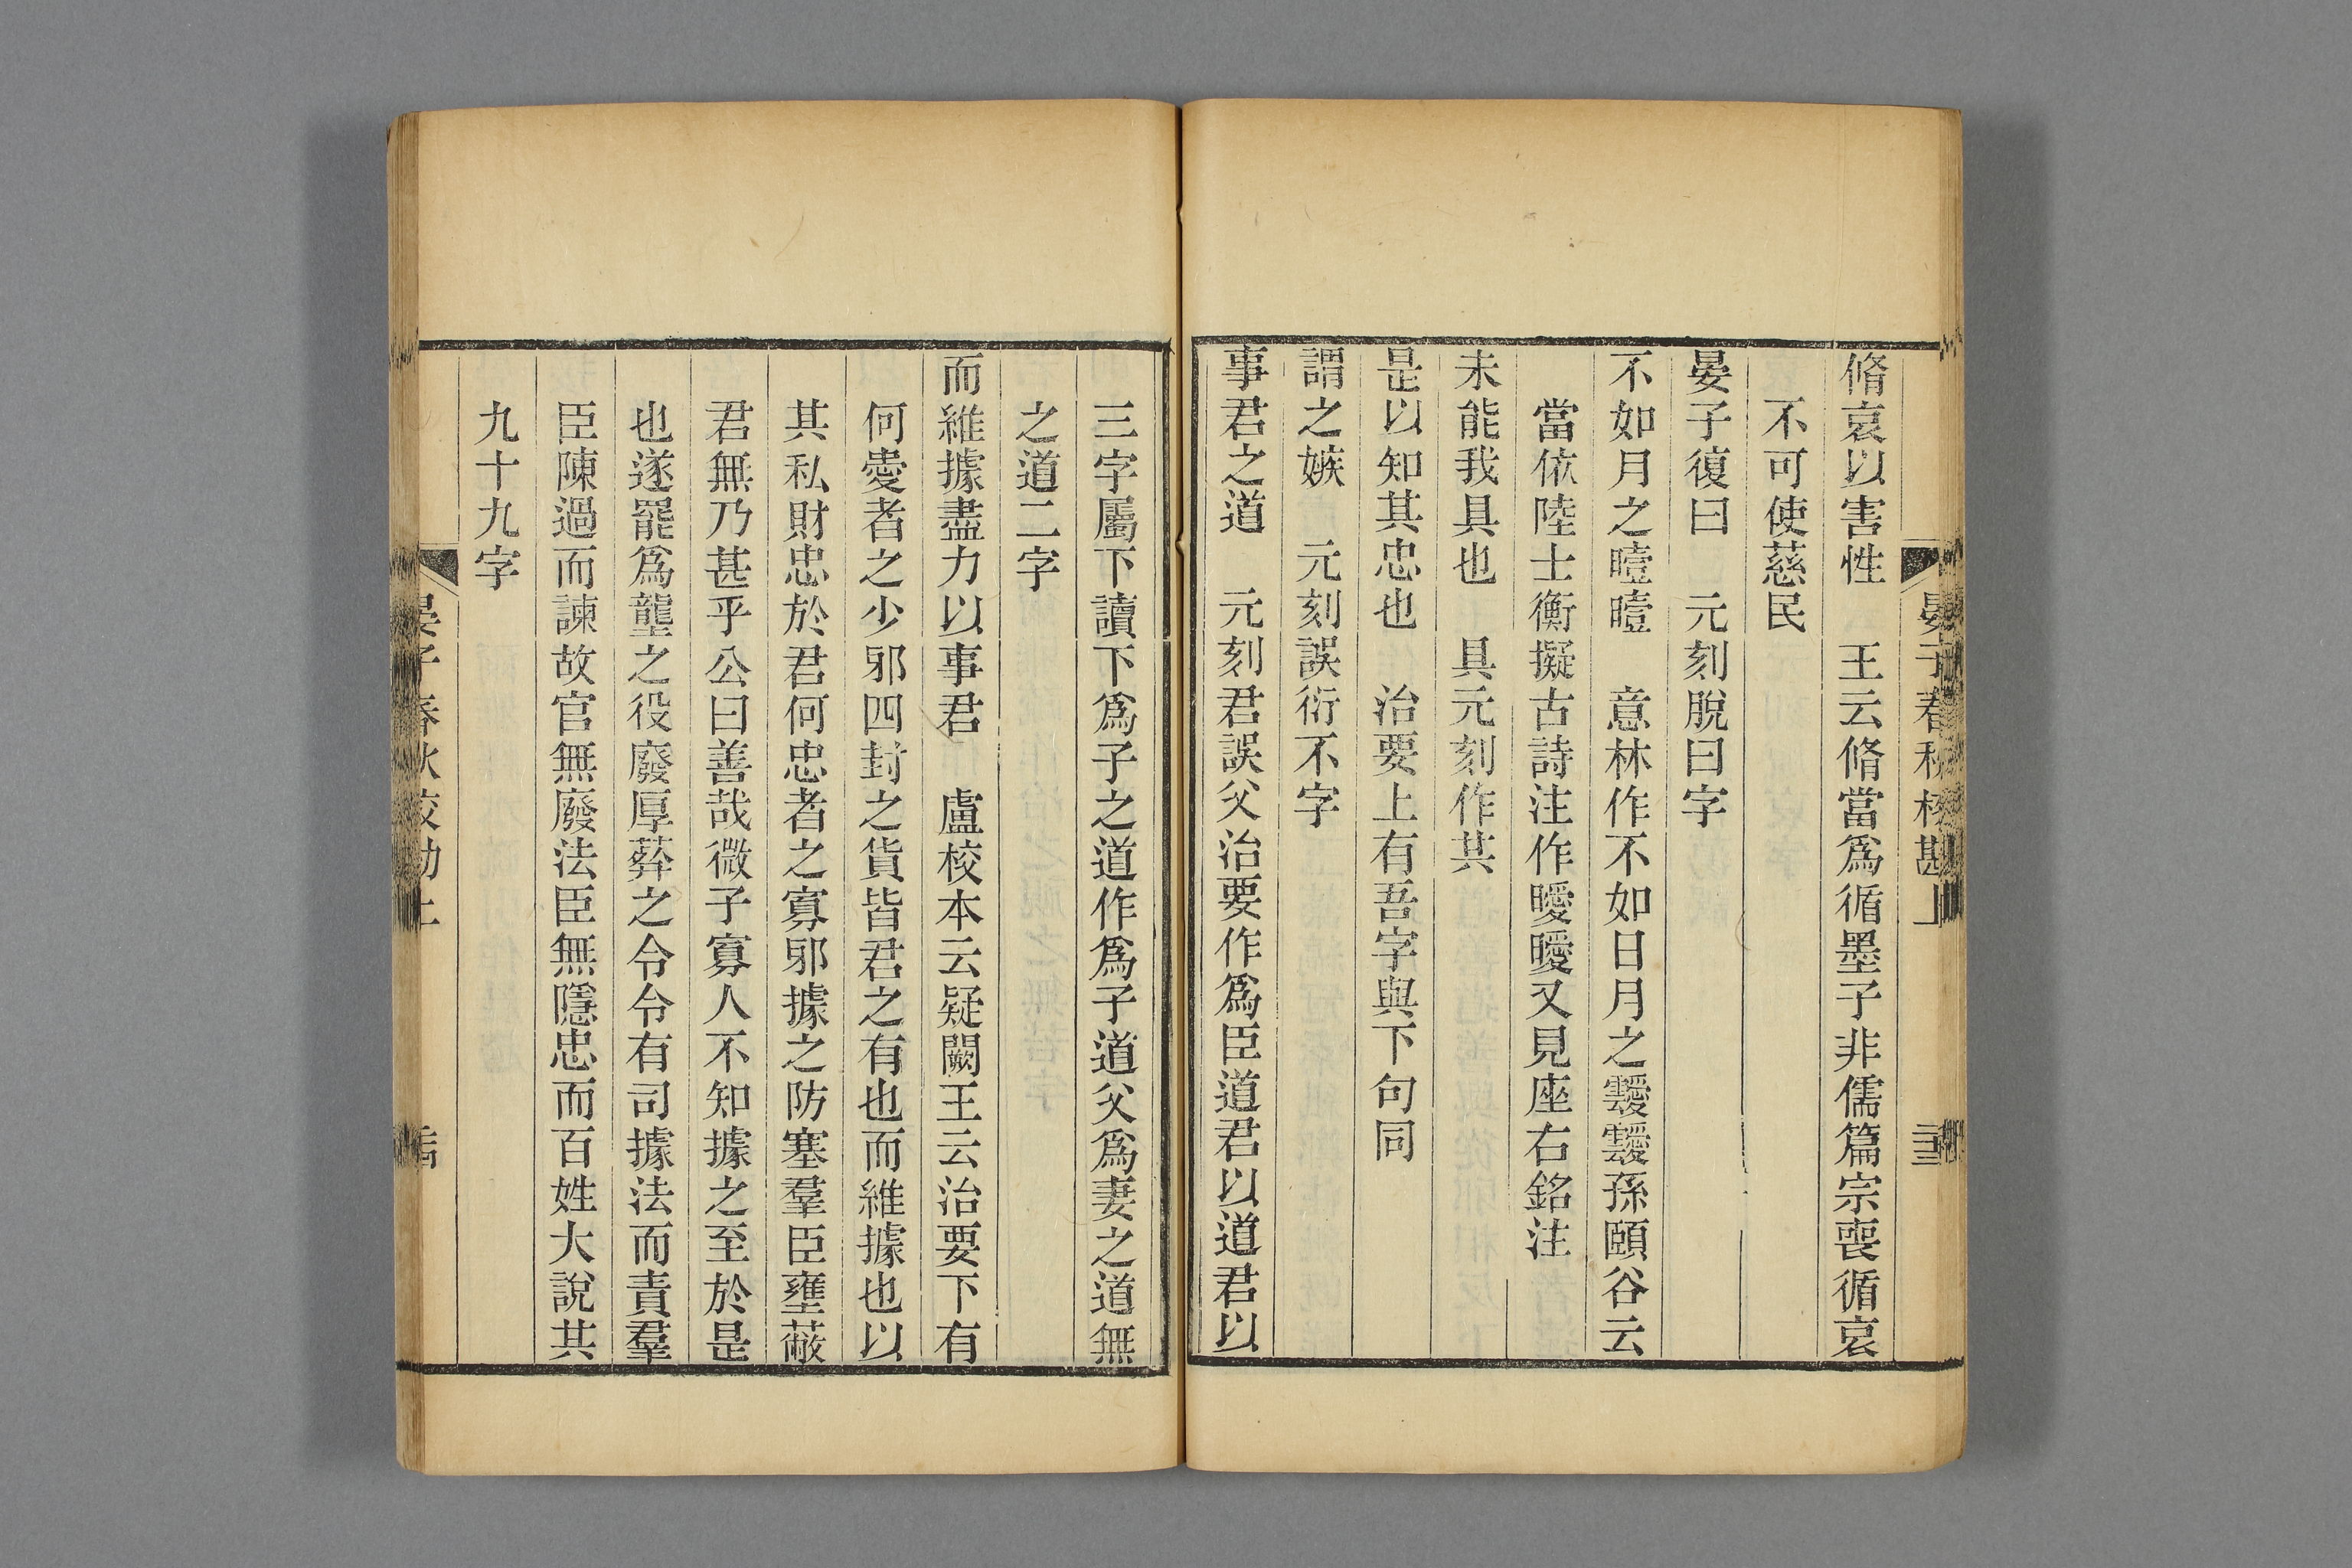 晏子春秋校勘上
脩哀以害性　王云脩當爲循墨子非儒篇宗喪循哀
不可使慈民
晏子復曰　元刻脫曰字
不如月之曀曀　意林作不如日月之靉靉孫頤谷云
當依陸士衡擬古詩注作曖曖又見座右銘注
未能我具也　具元刻作其
是以知其忠也　治要上有吾字與下句同
謂之嫉　元刻誤衍不字
事君之道　元刻君誤父治要作爲臣道君以道君以
三字屬下讀下爲子之道作爲子道父爲妻之道無
之道二字
而維據盡力以事君　盧校本云疑闕王云治要下有
何愛者之少邪四封之貨皆君之有也而維據也以
其私財忠於君何忠者之寡邪據之防塞羣臣壅蔽
君無乃甚乎公曰善哉微子寡人不知據之至於是
也遂罷爲壟之役廢厚葬之令令有司據法而責羣
臣陳過而諫故官無廢法臣無隱忠而百姓大說其
九十九字
晏子春秋校勘上